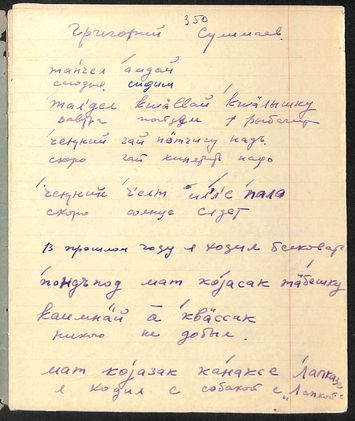 350
Григорий Сулимаев.
та́пчел а́мдай
сегодня сидим
та́лдел ква́лвай ква́лышку
завтра пойдем рыбачить
че́ңкий чай по́тчигу надъ
скоро чай кипятить надо
че́ңкий че́лт пала
скоро солнце сядет
в прошлом году я ходил белковать
по́ндъпод мат ко́јасак та́башку
каимна́й а̄ ква́ссак
ничего не добыл.
мат ко́јазак ка́наксе Ла́пказе
я ходил с собакой с „Лапкой“